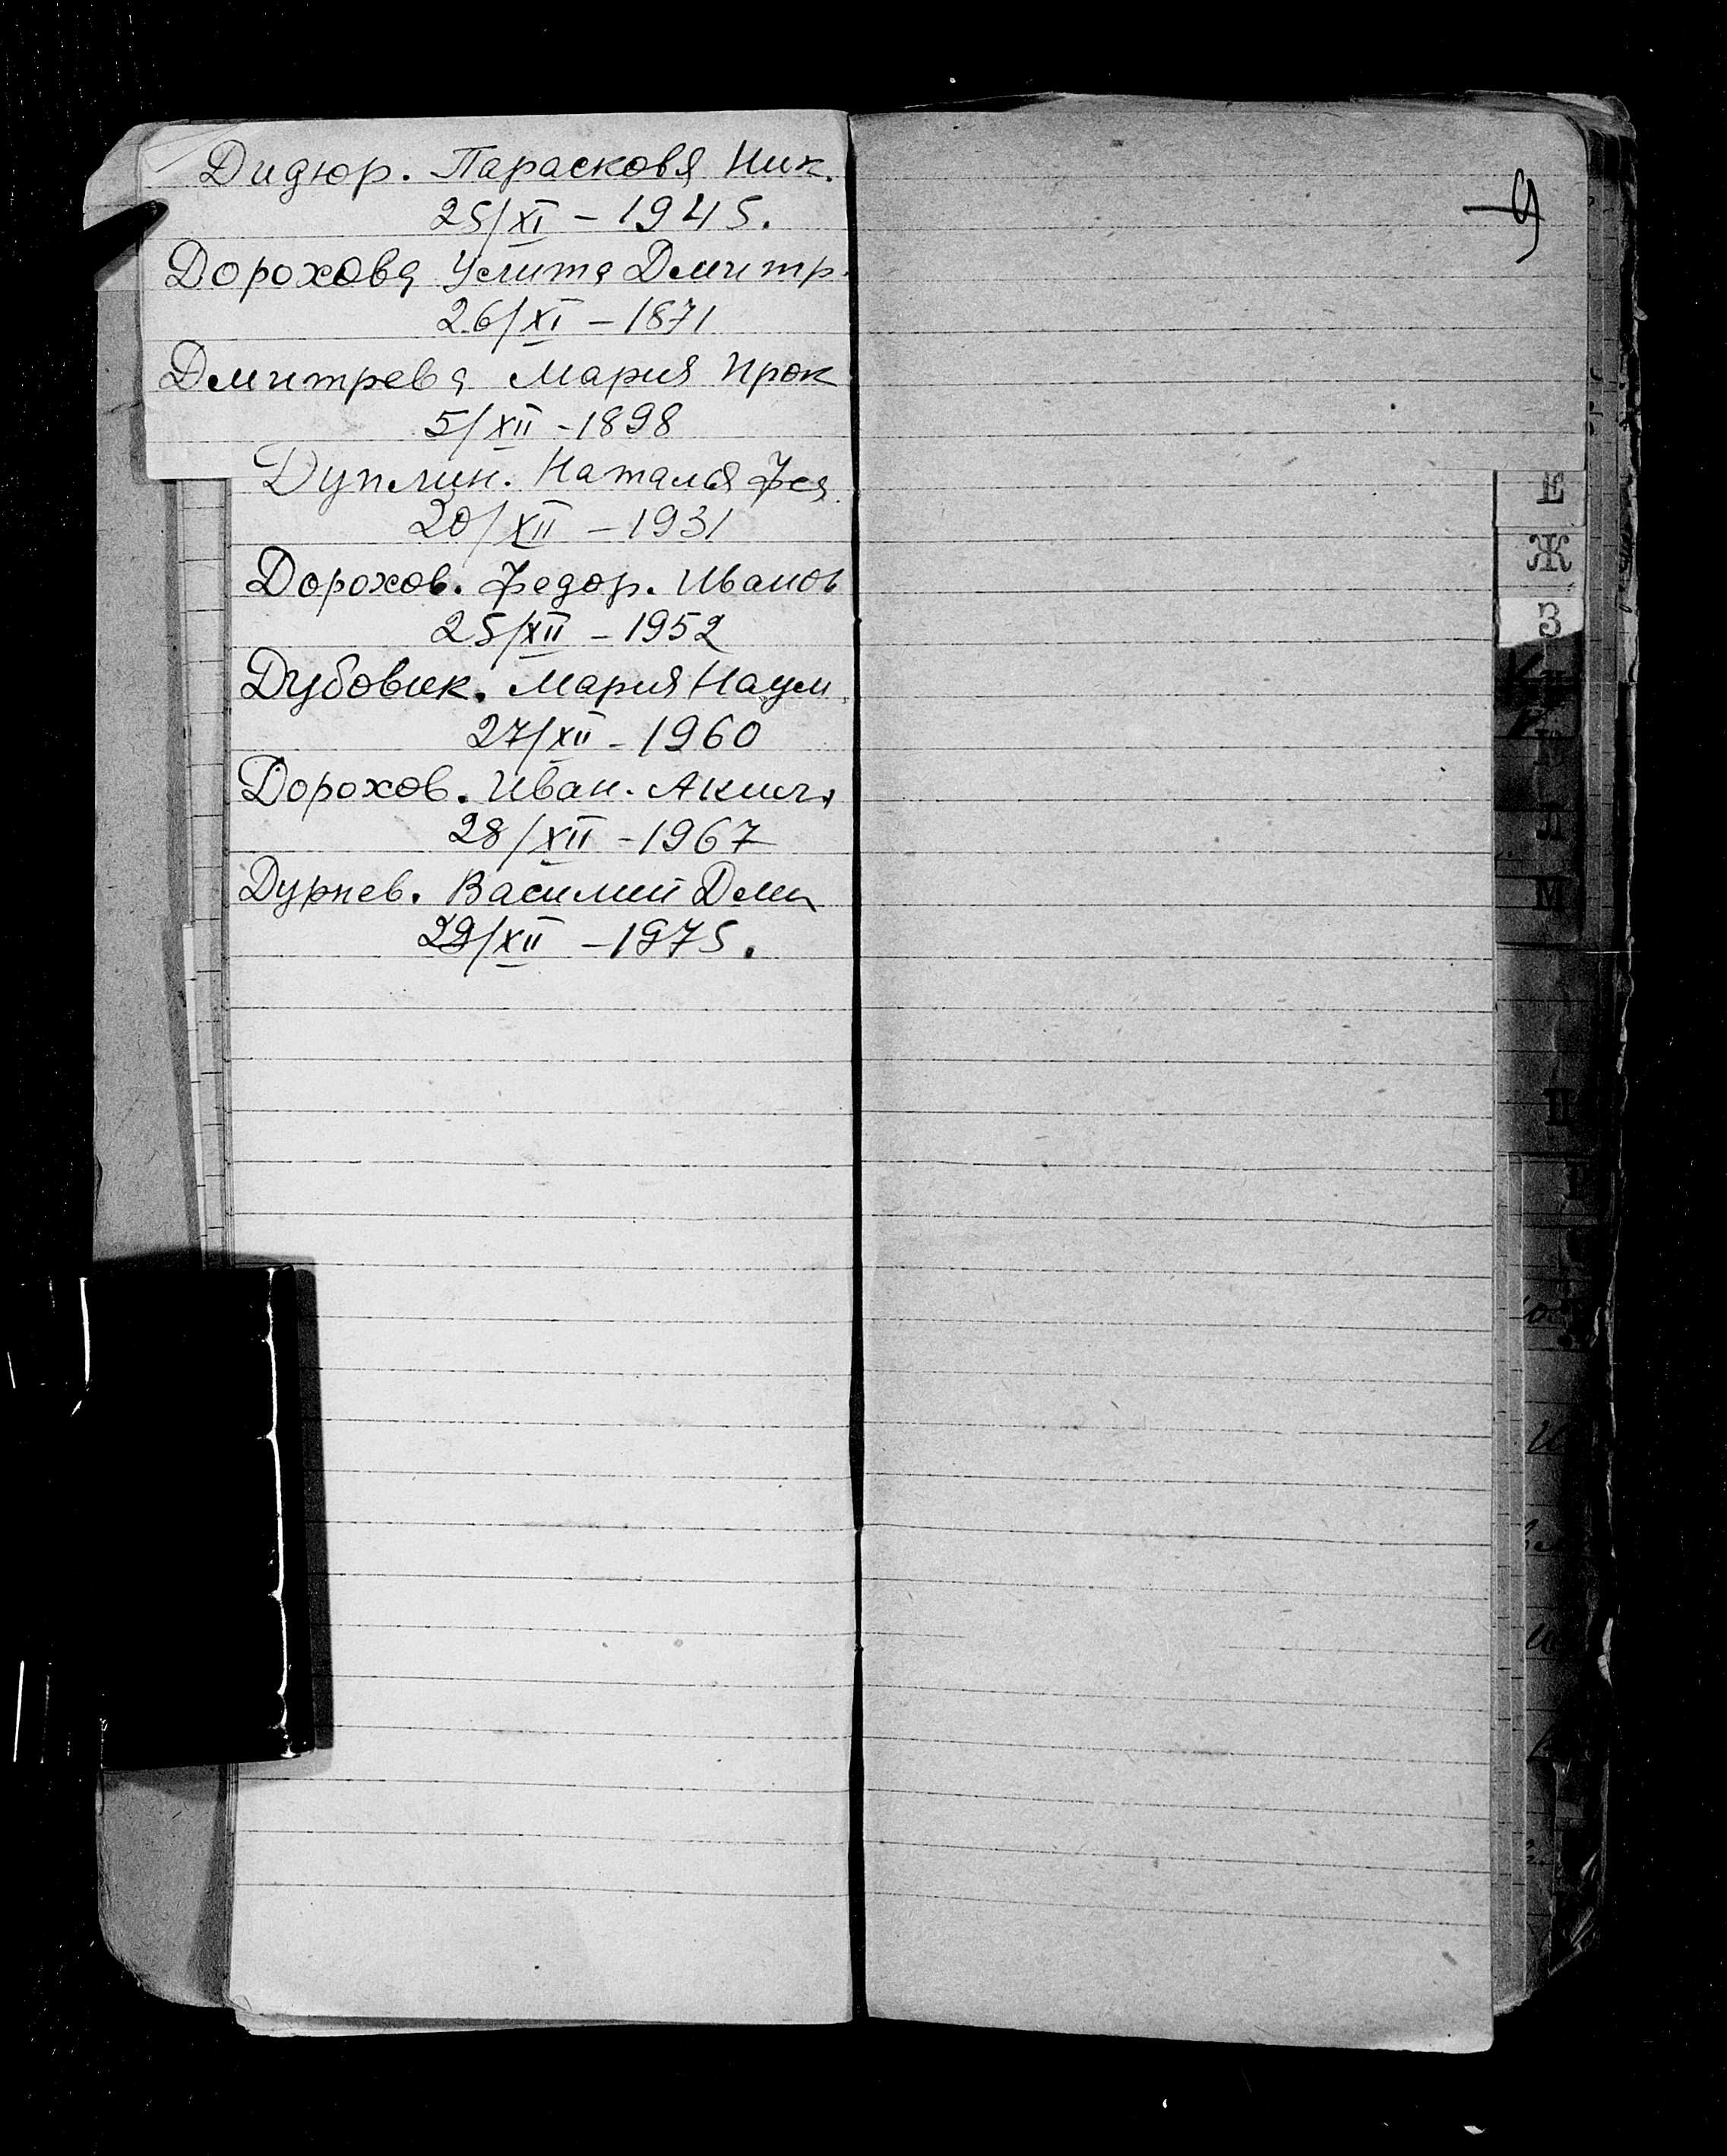 Дидюр. Парасковя Ник.
25/XI – 1945.
Дорохова Улита Дмитр.
26/XI – 1871
Дмитрева Мария Прок
5/XII - 1898
Дуплин. Наталья
20/XII – 1931
Дорохов. Федор. Иванов
25/XII – 1952
Дубовик. Мария Наум.
27/XII - 1960
Дорохов. Иван. Аким.
28/XII - 1967
Дурнев. Василий Дми
29/XII – 1975.
9
Е
Ж
З
Л
М
П